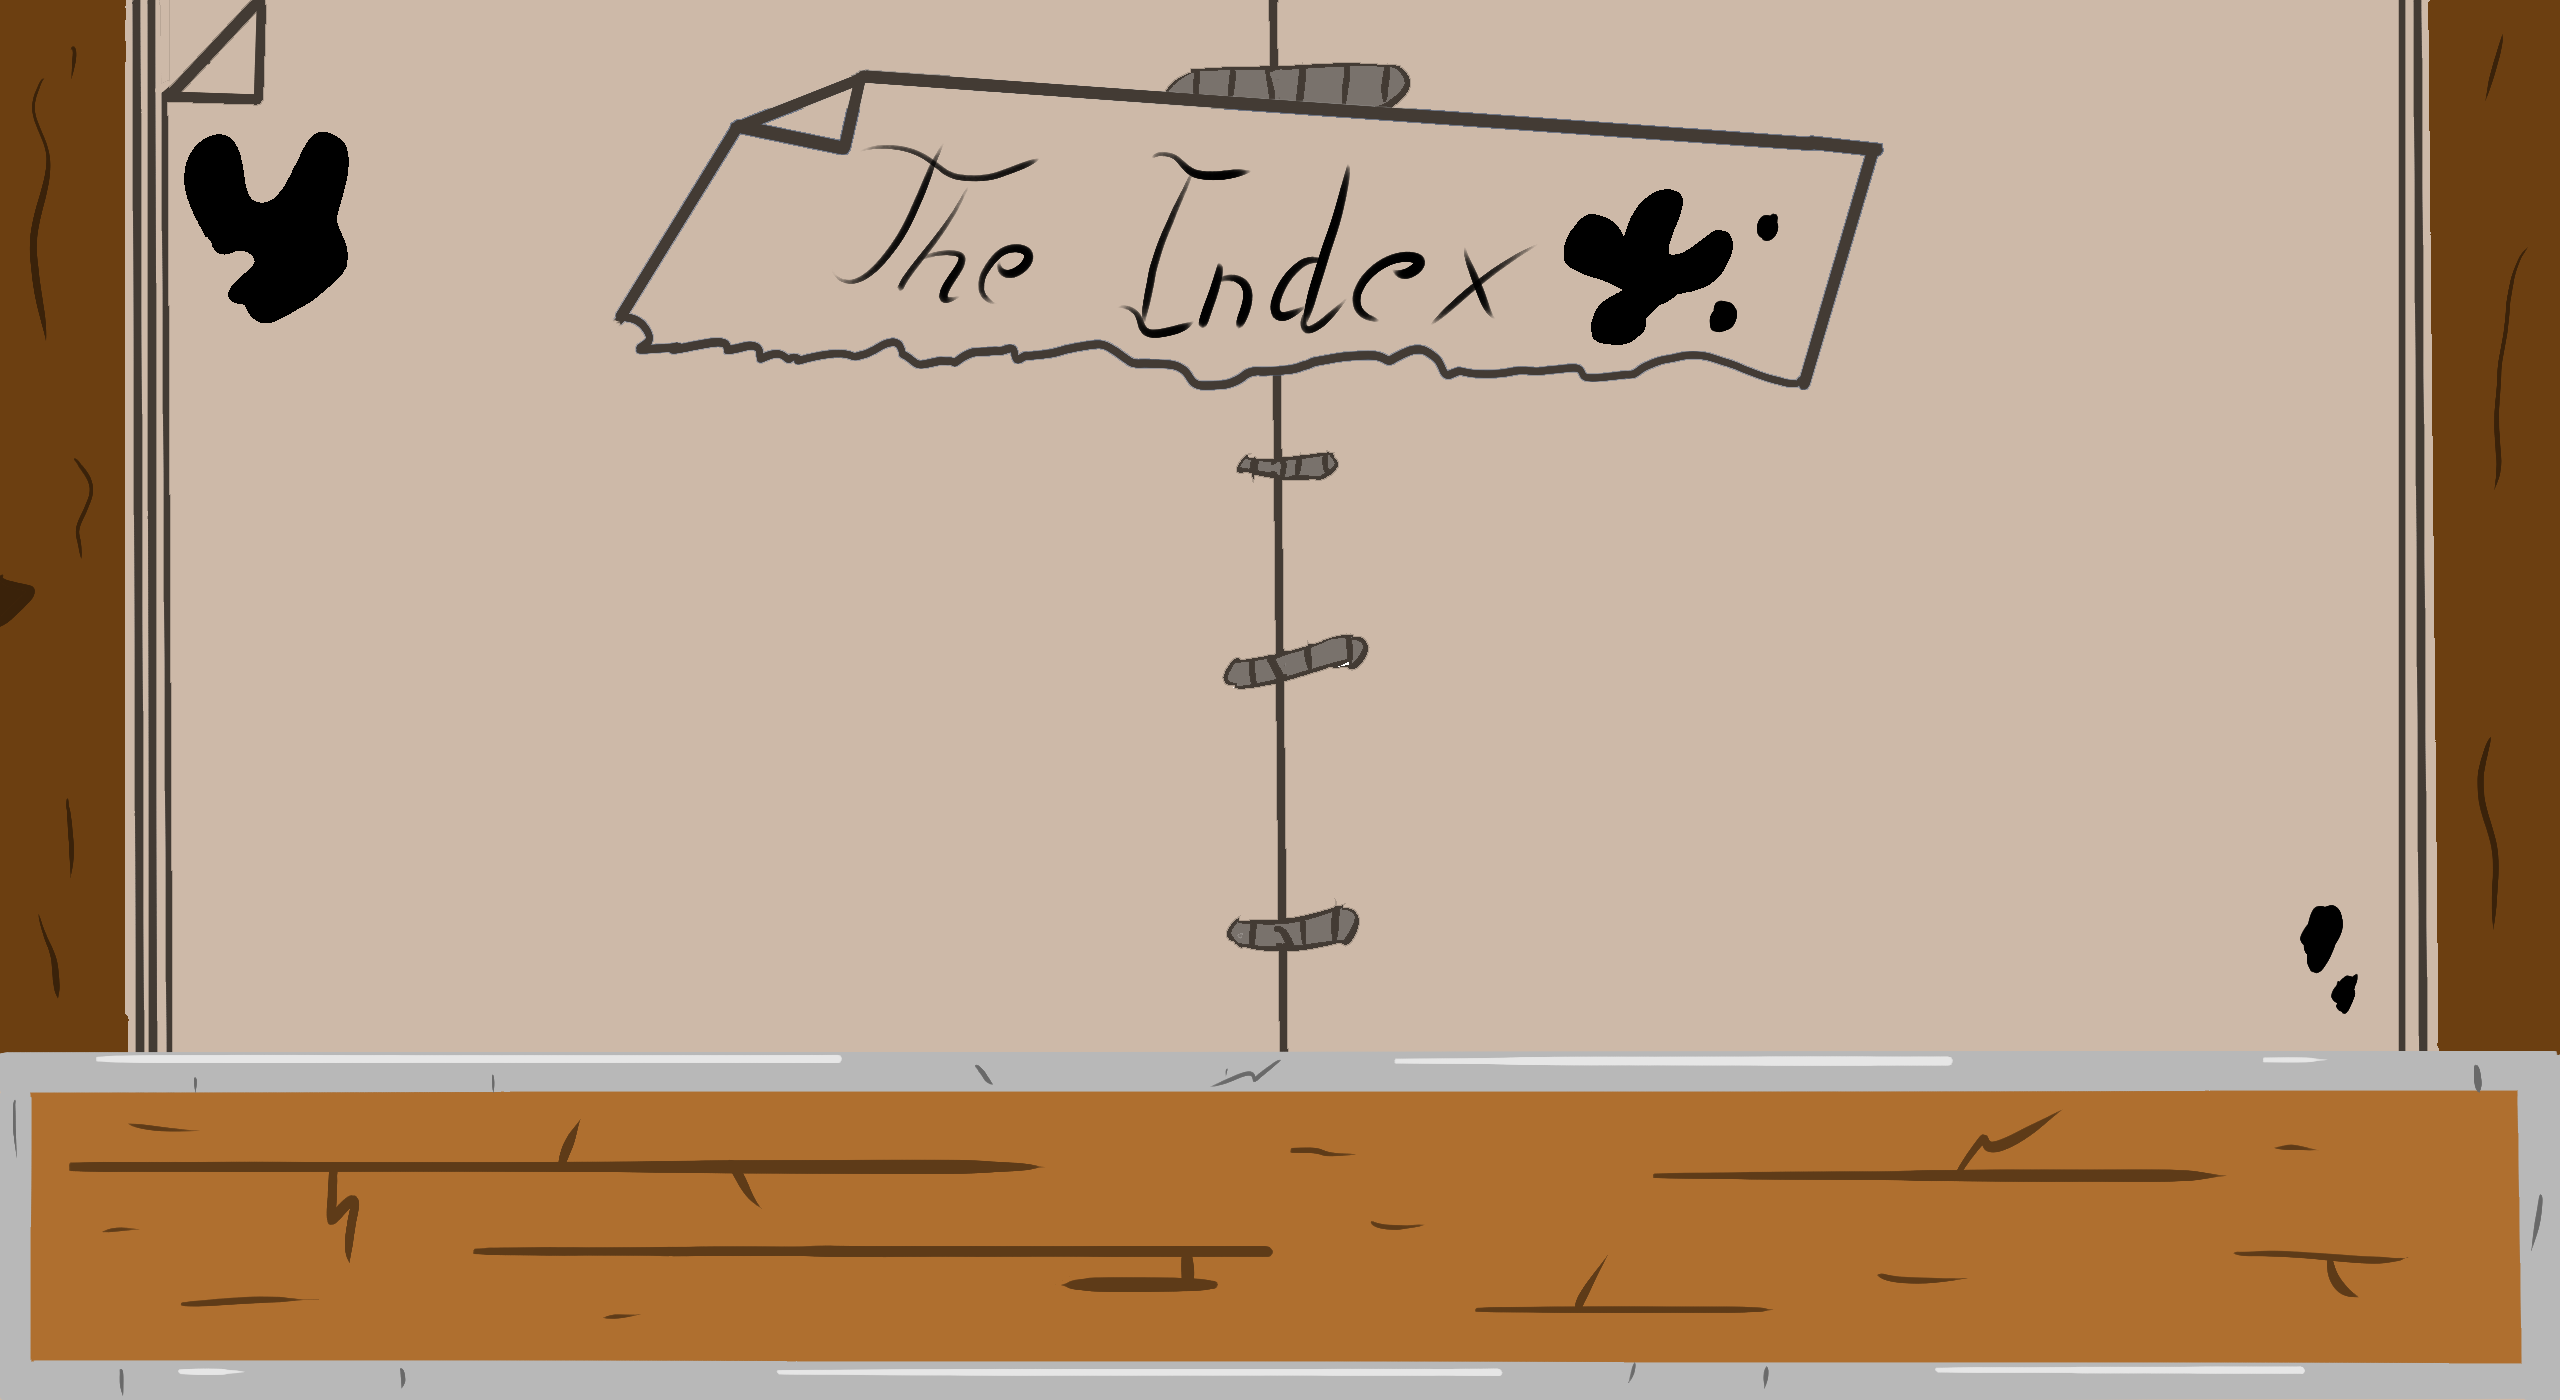 The Index